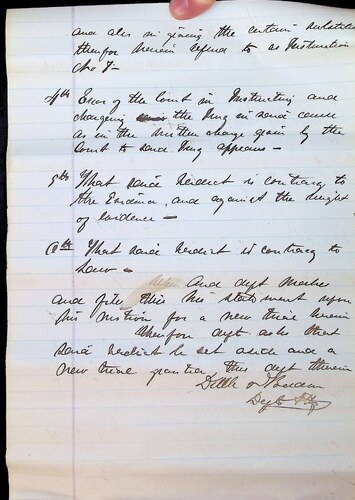 and also in giving the certain
therefor herein refered to as Instruction
No 7—
4th Error of the Court in Instructing and
charging the Jury in said cause
as in the written charge given by the
Court to said Jury appears—
5th That said verdict is contrary to
the Evidence, and against the weight
of Evidence—
6th That said verdict is contrary to
Law—
And deft makes
and files this his statement upon
his motion for a new trial herein
Wherefor deft asks that
said verdict be set aside and a
new trial granted this deft therein
Deft Atty